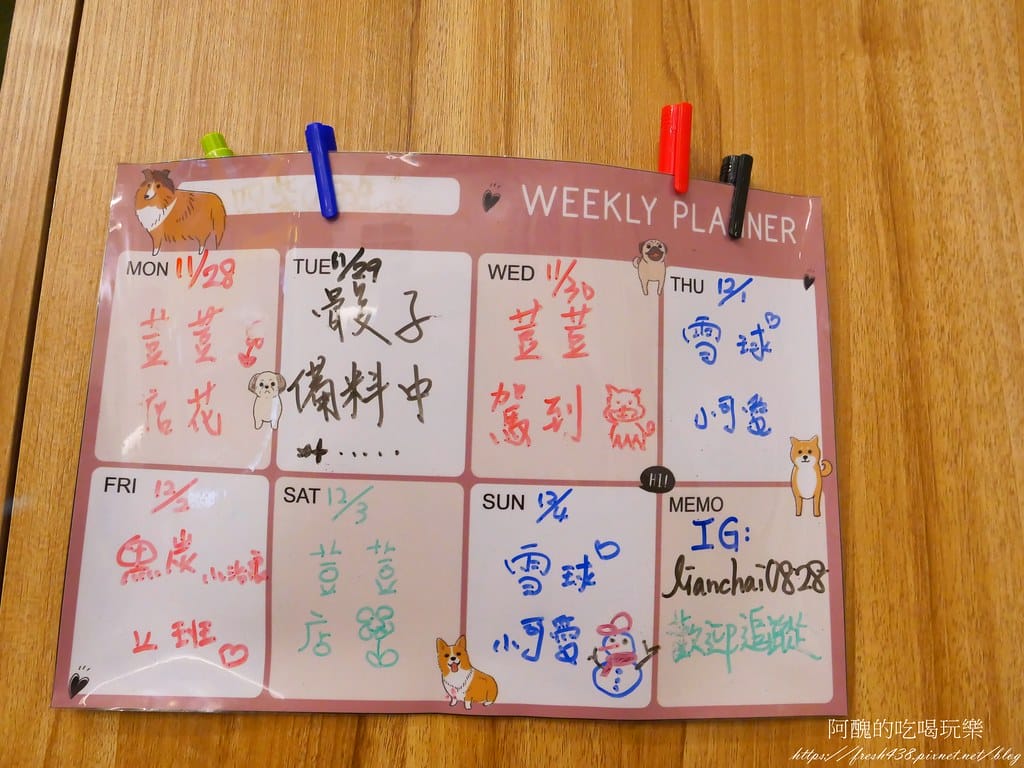 WEEKLY PLANNER
MON 11/28
荳荳
店花
TUE 11/29
骰子
備料中
......
WED 11/30
荳荳
駕到
THU 12/1
雪球
小可愛
FRI 12/2
黑炭
上班
SAT 12/3
荳荳
店
SUN 12/4
雪球
小可愛
HI!
MEMO
IG:
lianchai0828
歡迎追蹤
阿醜的吃喝玩樂
https://fresh438.pixnet.net/blog